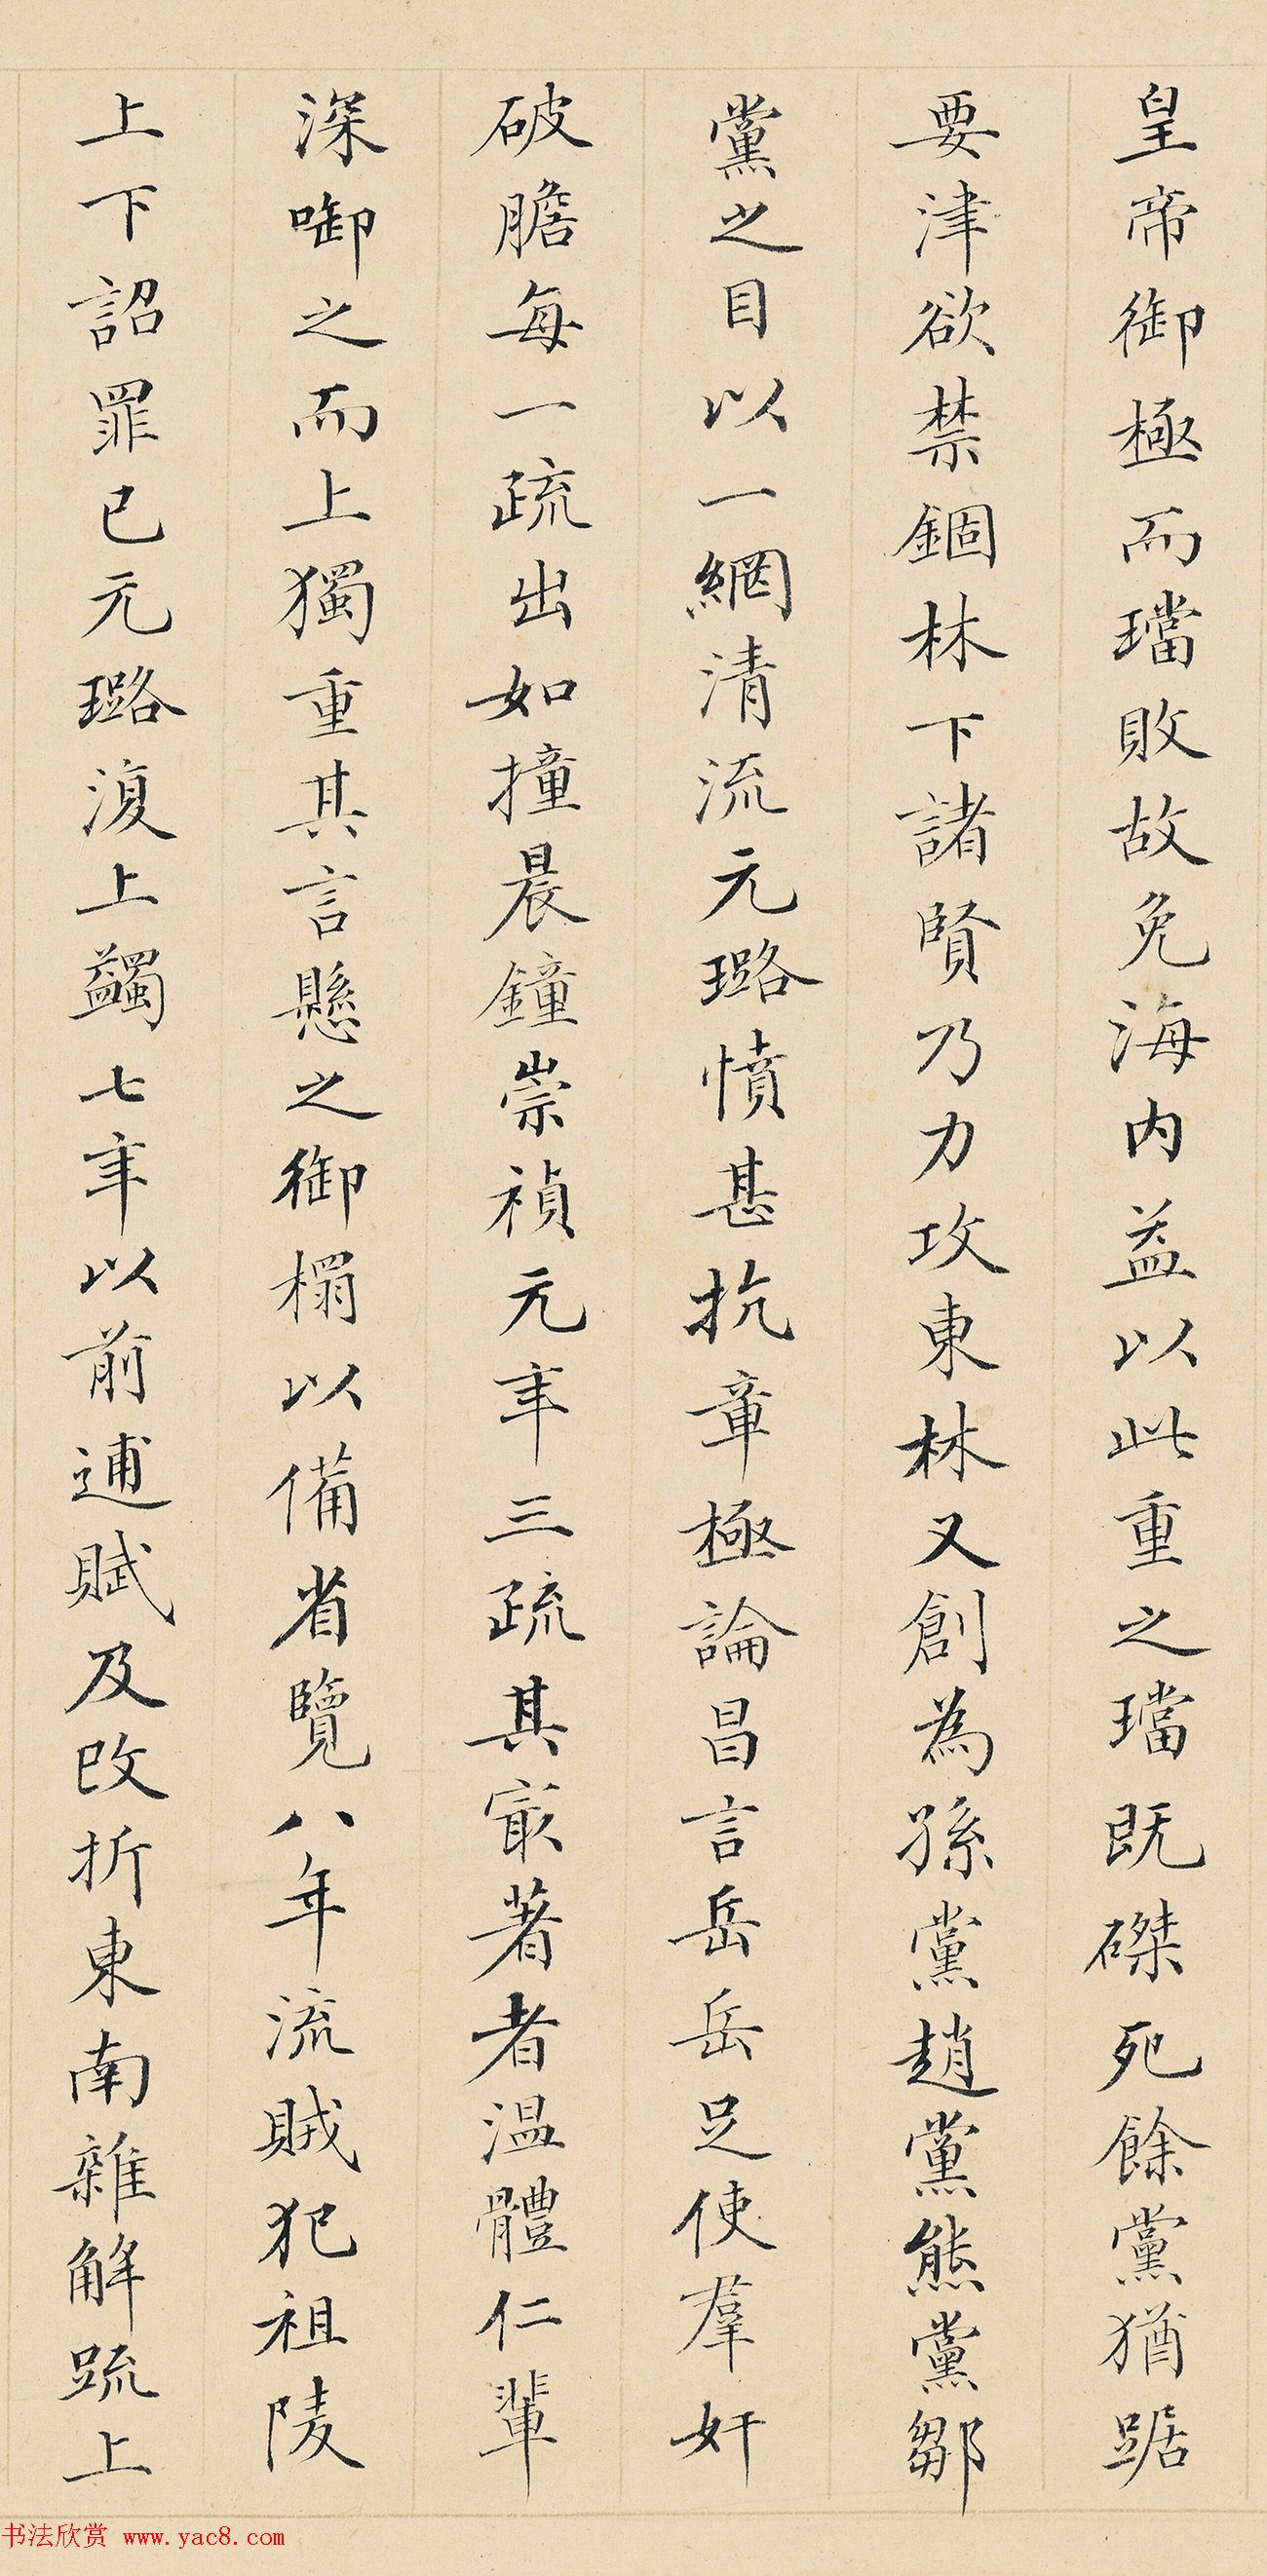 皇帝御極而璫敗故免海内益以此重之璫既磔死餘黨猶踞
要津欲禁錮林下諸賢乃力攻東林又創為孫黨趙黨熊黨鄒
黨之目以一網清流元璐憤甚抗章極論昌言岳岳足使羣奸
破膽每一疏出如撞晨鐘崇禎元年三疏其冣著者温體仁輩
深啣之而上獨重其言懸之御榻以備省覽八年流賊犯祖陵
上下詔罪已元璐復上蠲七年以前逋賦及改折東南雜解疏上
书法欣赏 www.yac8.com